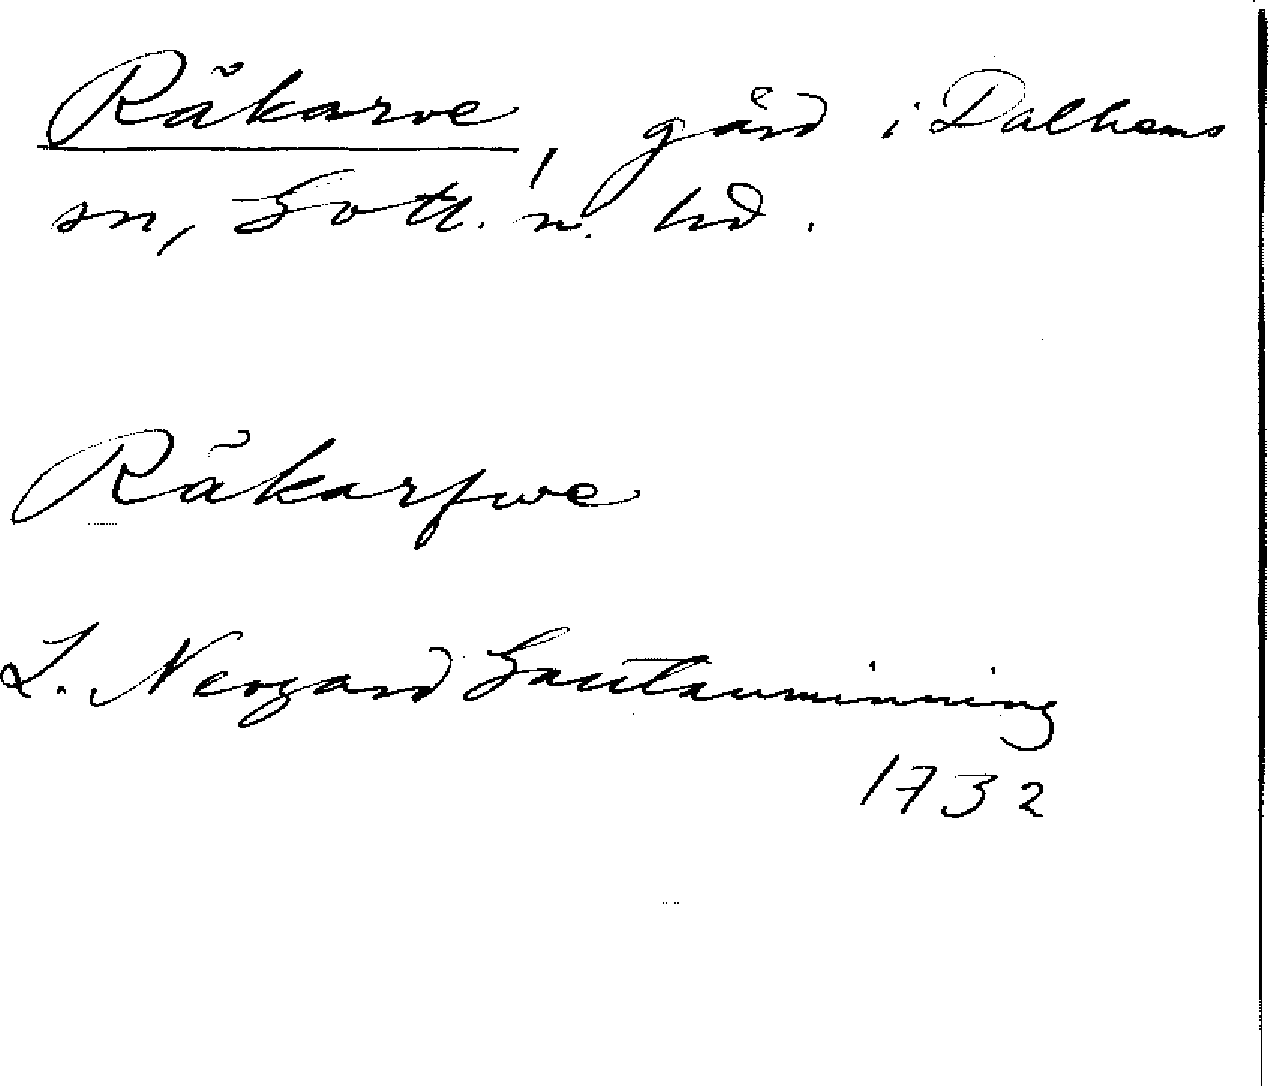 Räkarve, gård i Dalhems
sn, Gotl. n. hd.
Räkarfwe
L. Nergard Gautauminning
1732